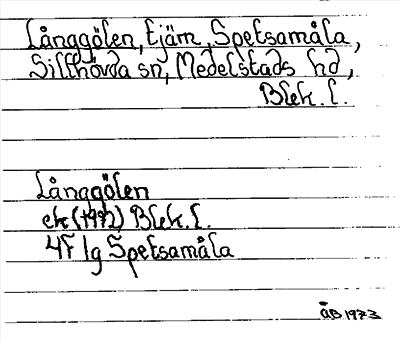 Långgölen, tjärn, Spetsamåla,
Sillhövda sn, Medelstads hd,
Blek. l.
Långgölen
ek (1972) Blek. l.
4F 1g Spetsamåla
ÅB 1973